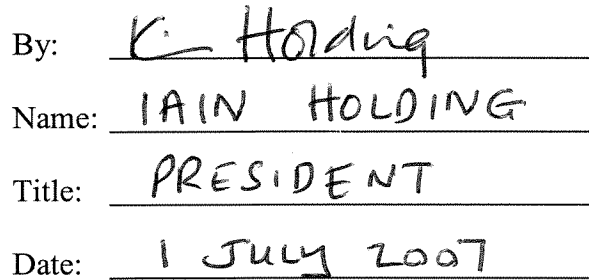 By: Holding
Name: IAIN HOLDING
Title: PRESIDENT
Date: 1 JULY 2007